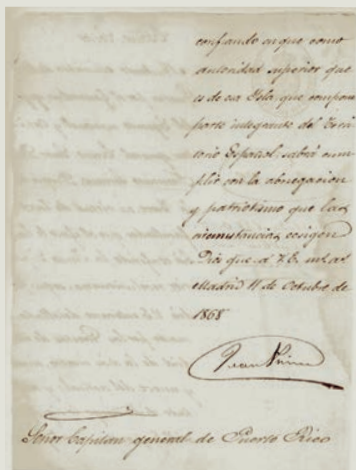 confiando en que como
autoridad superior que
es de esa Isla, que compone
parte integrante del Terri
torio Español, sabrá cum
plir con la abnegacion
y patriotismo que las
circunstancias, exigen
Dios que a V.E. ms. as.
Madrid 11 de Octubre de
1868
Juan Prim
Señor Capitan general de Puerto Rico